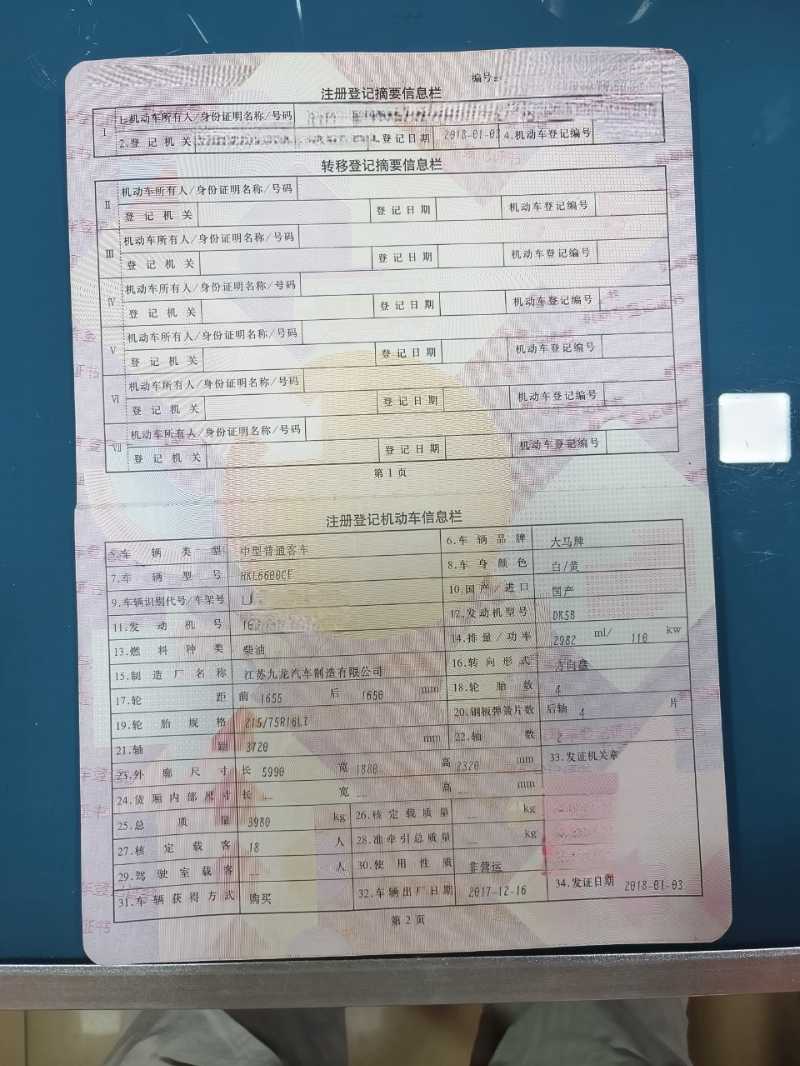 编号:
注册登记摘要信息栏
1 1.机动车所有人/身份证明名称/号码
2.登记机关 3.登记日期 2018-01-03 4.机动车登记编号
转移登记摘要信息栏
Ⅱ 机动车所有人/身份证明名称/号码
登记机关 登记日期 机动车登记编号
Ⅲ 机动车所有人/身份证明名称/号码
登记机关 登记日期 机动车登记编号
Ⅳ 机动车所有人/身份证明名称/号码
登记机关 登记日期 机动车登记编号
Ⅴ 机动车所有人/身份证明名称/号码
登记机关 登记日期 机动车登记编号
Ⅵ 机动车所有人/身份证明名称/号码
登记机关 登记日期 机动车登记编号
Ⅶ 机动车所有人/身份证明名称/号码
登记机关 登记日期 机动车登记编号
第1页
注册登记机动车信息栏
5.车辆类型 中型普通客车 6.车辆品牌 大马牌
7.车辆型号 HKL6600CE 8.车身颜色 白/黄
9.车辆识别代号/车架号 10.国产/进口 国产
11.发动机号 12.发动机型号 DK5B
13.燃料种类 柴油 14.排量/功率 2982 ml/ 110 kw
15.制造厂名称 江苏九龙汽车制造有限公司 16.转向形式 方向盘
17.轮距 前 1655 后 1650 mm 18.轮胎数 4
19.轮胎规格 215/75R16LT 20.钢板弹簧片数 后轴 4 片
21.轴距 3720 mm 22.轴数 2
23.外廓尺寸 长 5990 宽 1880 高 2320 mm 33.发证机关章
24.货厢内部尺寸 长 -- 宽 -- 高 -- mm
25.总质量 3980 kg 26.核定载质量 -- kg
27.核定载客 18 人 28.准牵引总质量 -- kg
29.驾驶室载客 -- 人 30.使用性质 非营运
31.车辆获得方式 购买 32.车辆出厂日期 2017-12-16 34.发证日期 2018-01-03
第2页